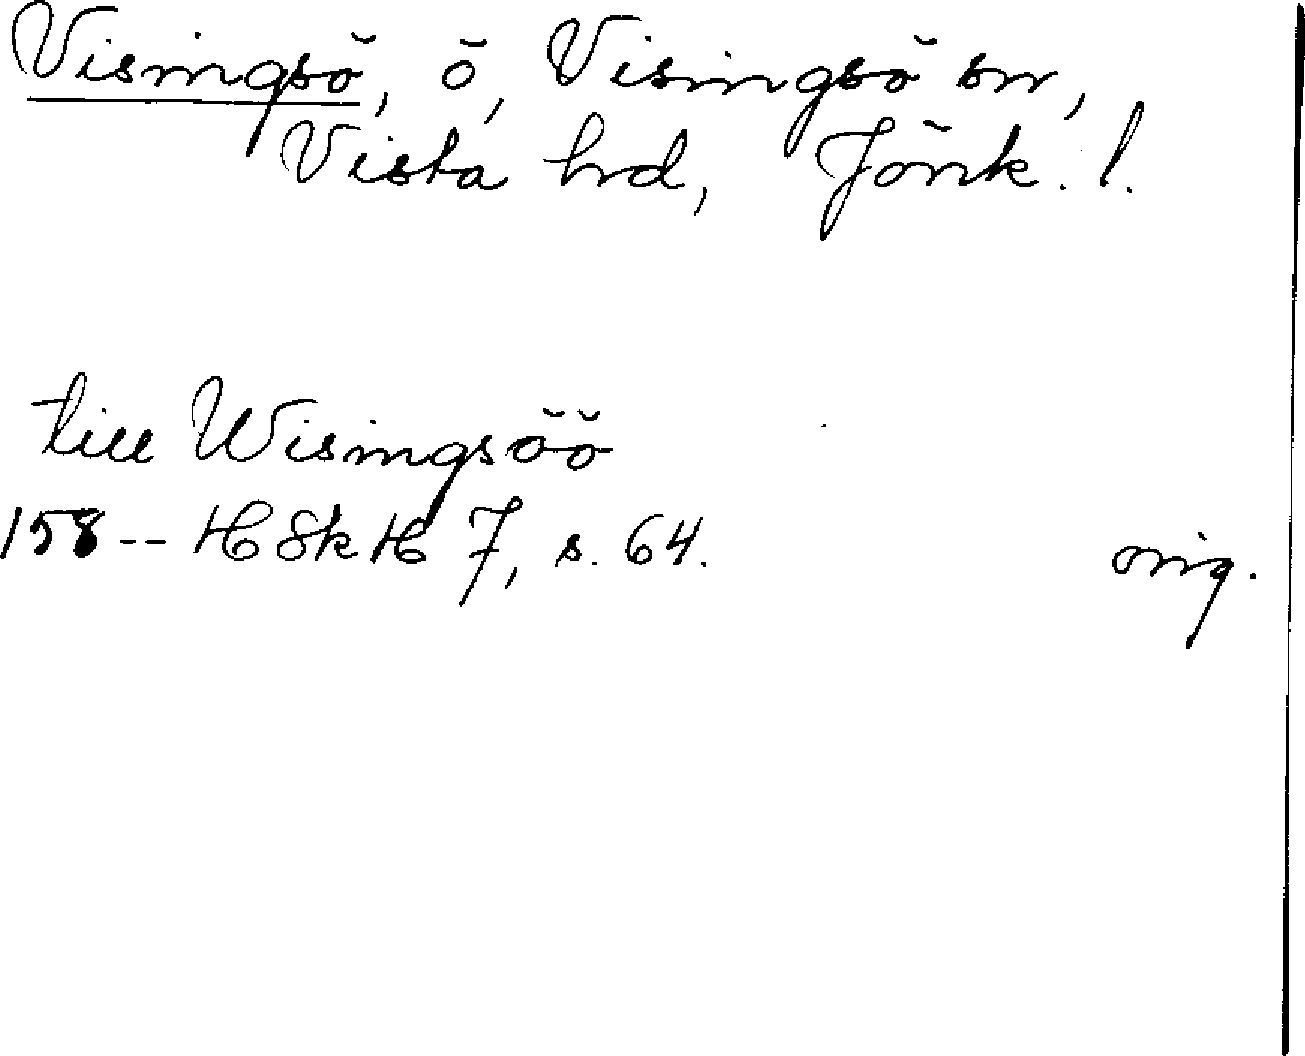 Visingsö, ö, Visingsö sn,
Vista hd, Jönk. l.
till Wisingsöö
158-- HSkH 7, s. 64.
orig.